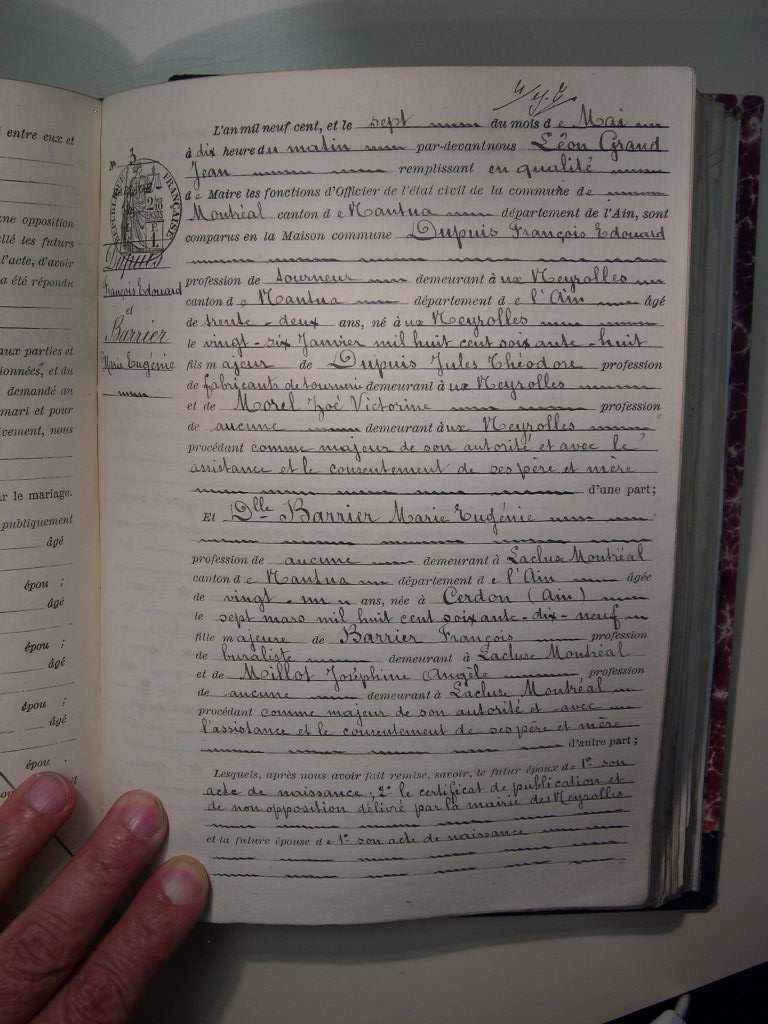 entre eux et
une opposition
ellé les futurs
l'acte, d'avoir
a été répondu
aux parties et
ionnées, et du
demandé au
mari et pour
ivement, nous
r le mariage.
publiquement
âgé
épou ;
âgé
épou ;
âgé
épou ;
âgé
épou
N° 3
RÉPUBLIQUE FRANÇAISE
Dupuis
François Edouard
et
Barrier
Marie Eugénie
L'an mil neuf cent, et le sept du mois de Mai
à dix heure du matin par-devant nous Léon Grand
Jean remplissant en qualité
de Maire les fonctions d'Officier de l'état civil de la commune de
Montréal canton de Nantua département de l'Ain, sont
comparus en la Maison commune Dupuis François Edouard
profession de tourneur demeurant à ux Neyrolles
canton de Nantua département de l'Ain âgé
de trente-deux ans, né à ux Neyrolles
le vingt-six Janvier mil huit cent soixante-huit
fils majeur de Dupuis Jules Théodore profession
de fabricant de tournerie demeurant à ux Neyrolles
et de Morel Zoé Victorine profession
de aucune demeurant à ux Neyrolles
procédant comme majeur de son autorité et avec le
assistance et le consentement de ses père et mère
d'une part;
Et Dlle Barrier Marie Eugénie
profession de aucune demeurant à Lacluse Montréal
canton de Nantua département de l'Ain âgée
de vingt-un ans, née à Cerdon (Ain)
le sept mars mil huit cent soixante-dix-neuf
fille majeure de Barrier François profession
de buraliste demeurant à Lacluse Montréal
et de Millot Joséphine Angèle profession
de aucune demeurant à Lacluse, Montréal
procédant comme majeur de son autorité et avec
l'assistance et le consentement de ses père et mère
d'autre part;
Lesquels, après nous avoir fait remise, savoir, le futur époux de 1° son
acte de naissance; 2° le certificat de publication et
de non opposition délivré par la mairie des Neyrolles
et la future épouse de 1° son acte de naissance